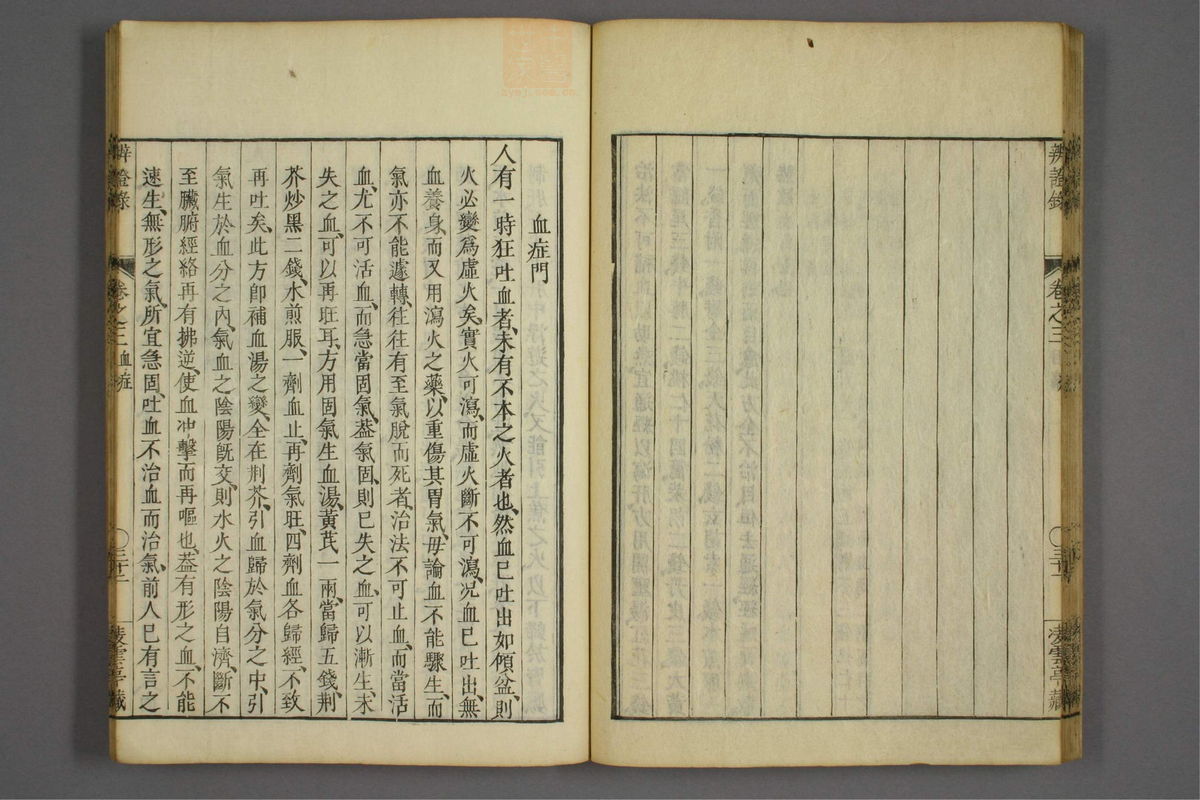 辨證錄 卷之三 三十一 菱雲亭藏
血症門
人有一時狂吐血者、未有不本之火者也、然血已吐出如傾盆、則
火必變爲虛火矣、實火可瀉、而虛火斷不可瀉、况血已吐出、無
血養身、而又用瀉火之藥、以重傷其胃氣、毋論血不能驟生、而
氣亦不能遽轉、往往有至氣脫而死者、治法不可止血、而當活
血、尤不可活血、而急當固氣、葢氣固、則已失之血、可以漸生、未
失之血、可以再旺耳、方用固氣生血湯、黃芪一兩、當歸五錢、荆
芥炒黑二錢、水煎服、一劑血止、再劑氣旺、四劑血各歸經、不致
再吐矣、此方卽補血湯之變、全在荆芥、引血歸於氣分之中、引
氣生於血分之內、氣血之陰陽旣交、則水火之陰陽自濟、斷不
至臟腑經絡再有拂逆、使血冲擊而再嘔也、葢有形之血、不能
速生、無形之氣、所宜急固、吐血不治血而治氣、前人已有言之
辨證錄 卷之三 血症 三十二 菱雲亭藏